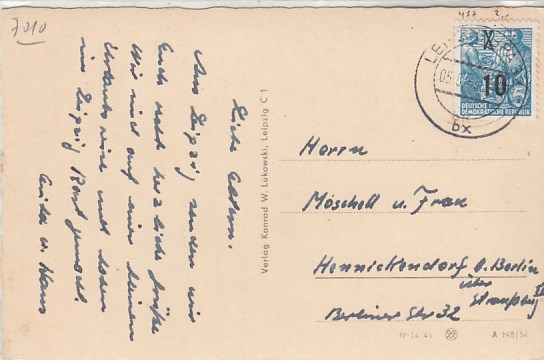 7010
Liebe Eltern.
Aus Leipzig senden wir
Euch recht herzliche Grüße
Wir sind auf einer kleinen
und haben
in Leipzig Rast gemacht.
u. Hans
Verlag Konrad W. Lukowski, Leipzig C 1
437
LEIPZIG
05.
bx
X
10
DEUTSCHE
DEMOKRATISCHE REPUBLIK
Herrn
Möschell u. Frau
Hennickendorf b. Berlin
über
Strausberg
Berliner Str 32
IV-14-45
A 148/54